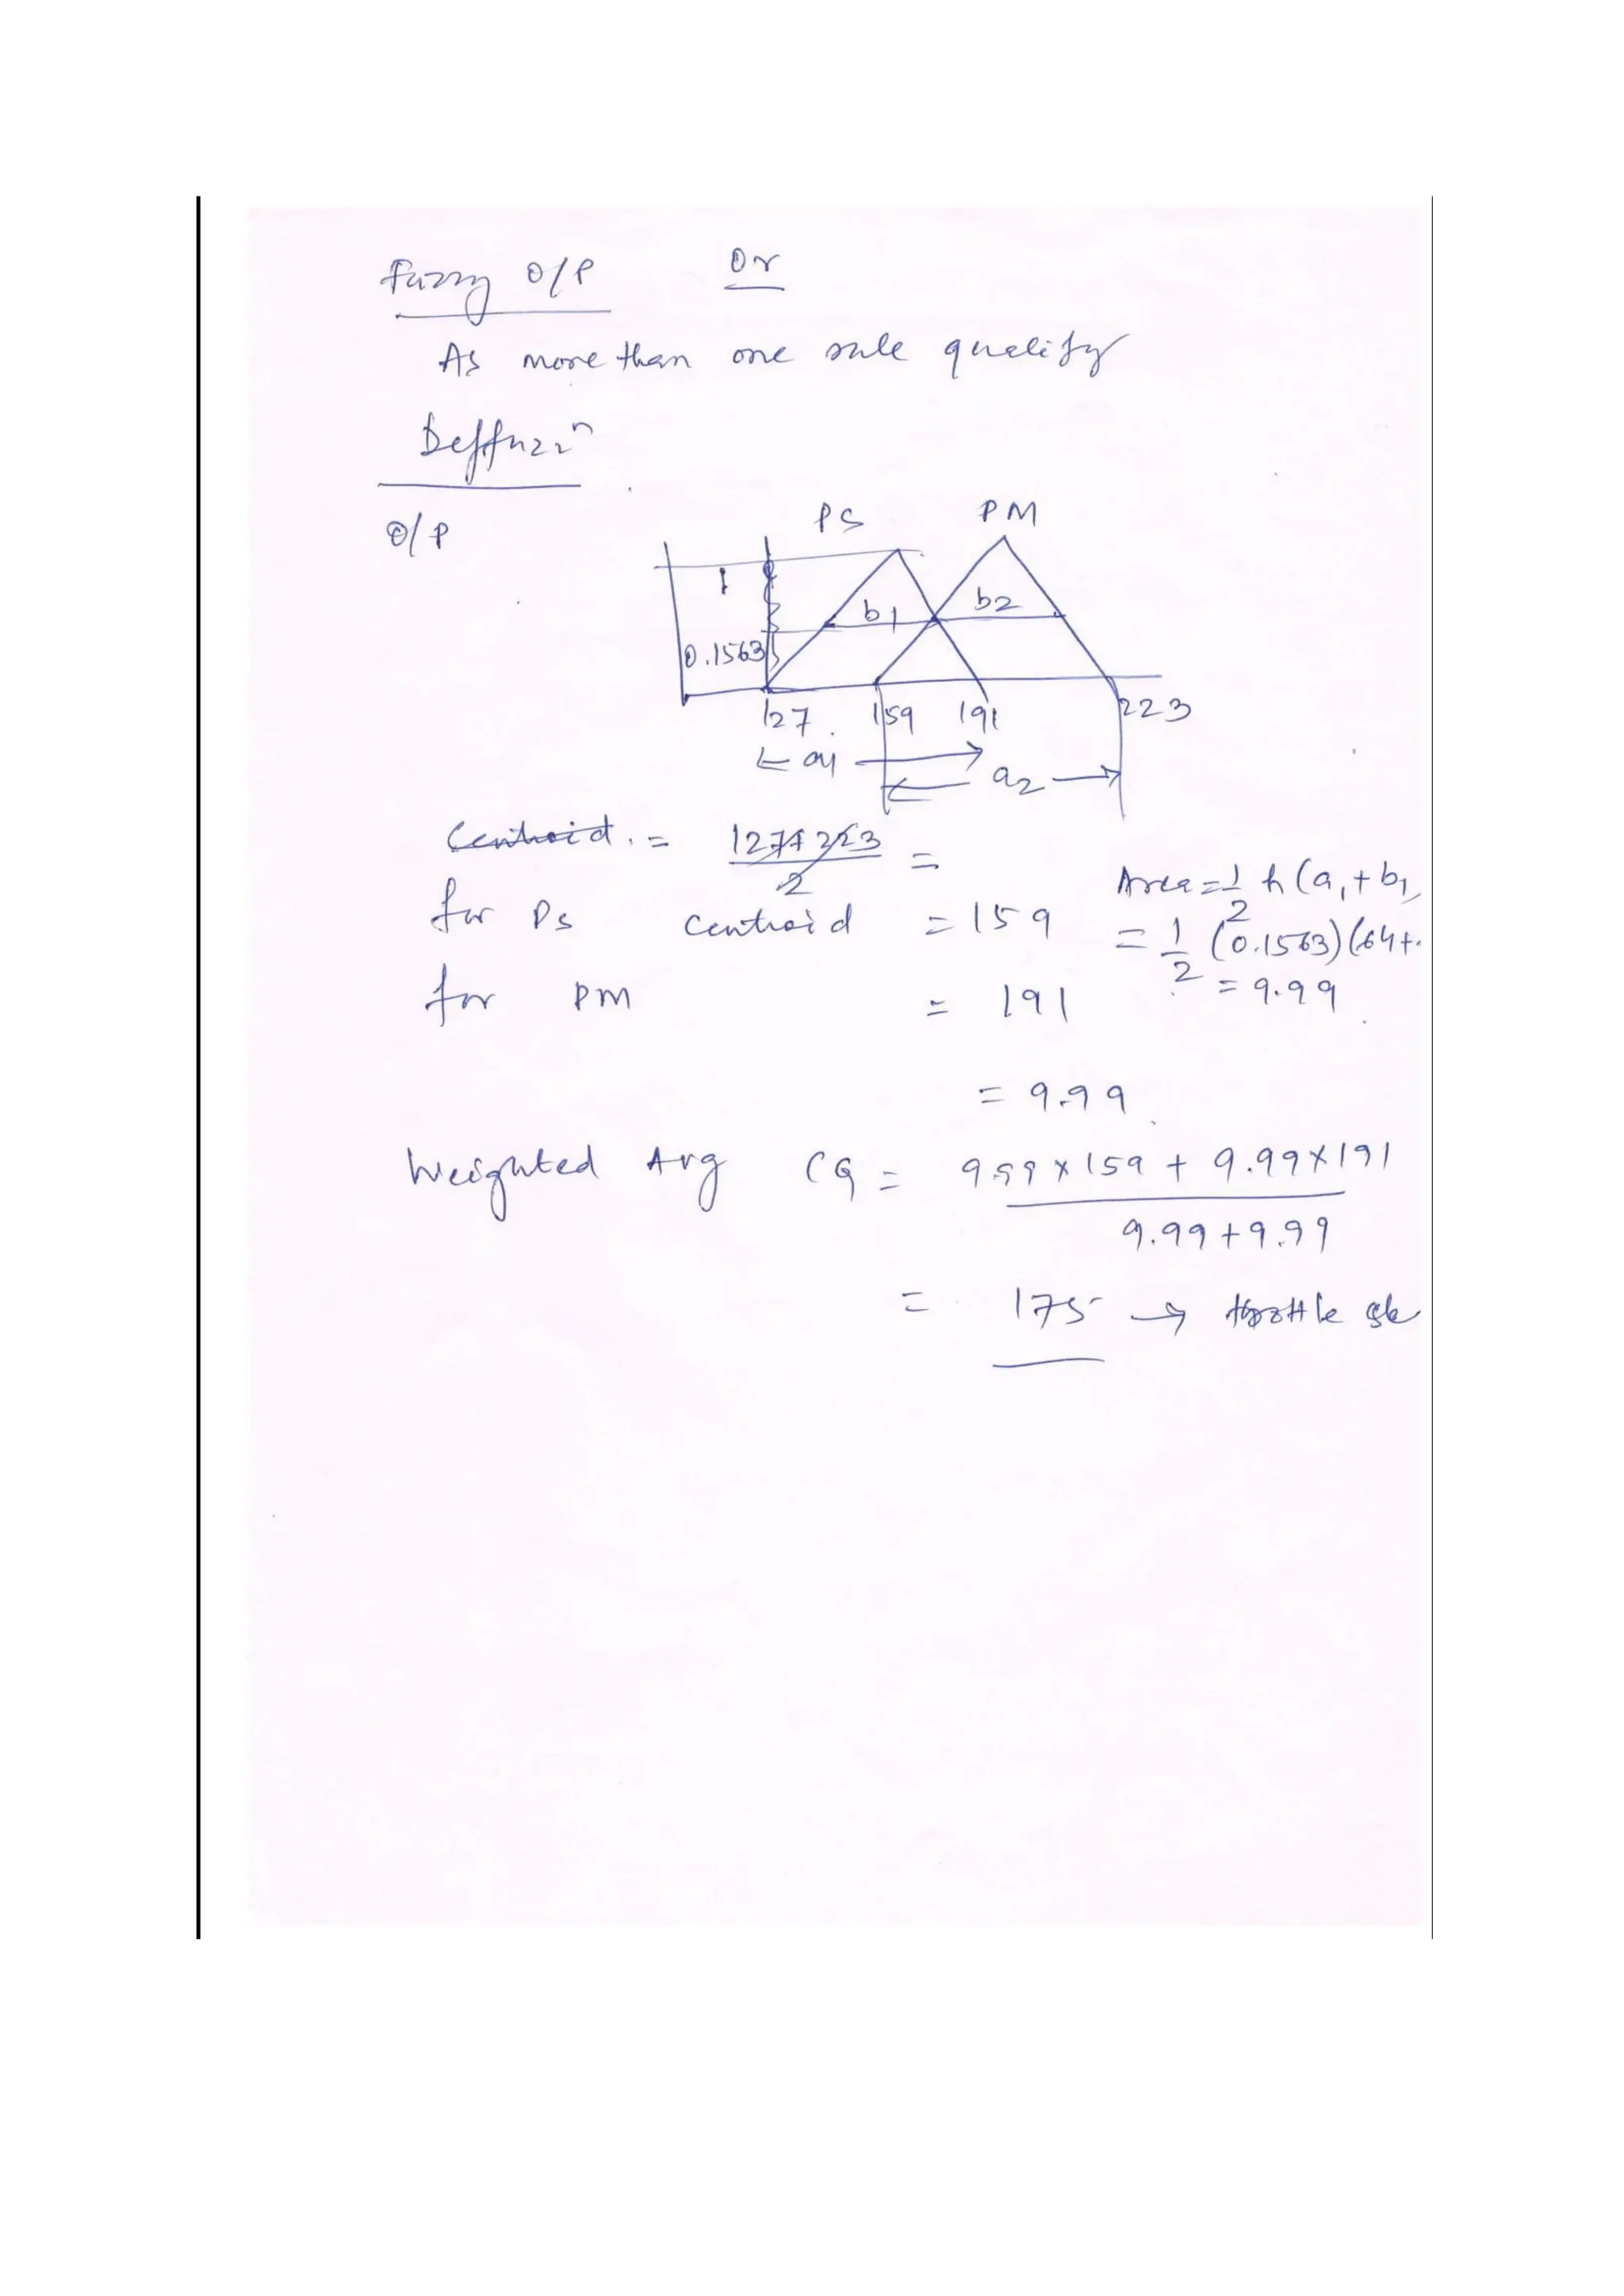 Fuzzy O/P Or
As more than one rule qualify
Deffuzzⁿ
O/P
PS PM
1
b1 b2
0.1563
127 159 191 223
a1
a2
Centroid. = 127+223 / 2 =
Area = 1/2 h (a₁ + b₁
for Ps Centroid = 159
= 1/2 (0.1563) (64+
for PM = 191
= 9.99
= 9.99
Weighted Avg CG = 9.99 x 159 + 9.99 x 191
9.99 + 9.99
= 175 → throttle